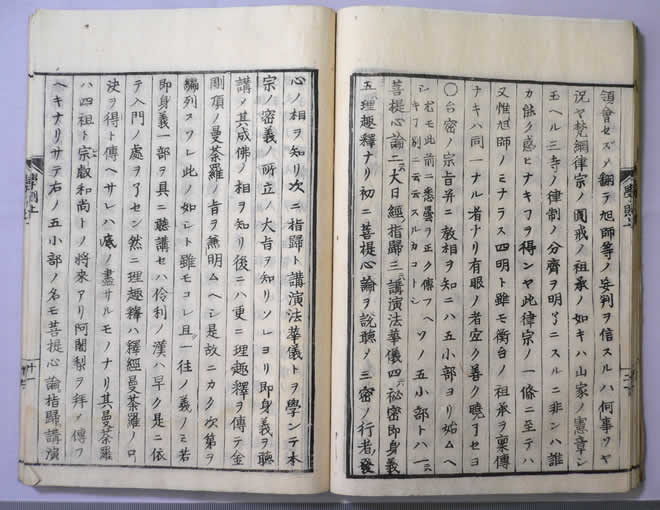 領會セズメ翻テ旭師等ノ妄判ヲ信スルハ何事ソヤ
況ヤ梵網律宗ノ圓戒ノ祖承ノ如キハ山家ノ憲章ン
玉ヘル三寺ノ律制ノ分齊ヲ明了ニスルニ非ンハ誰
カ能ク惑ヒナキフヲ得ンヤ此律宗ノ一條ニ至テハ
又惟旭師ノミナラス四明ト雖モ衡台ノ祖承ヲ稟傳
ナキハ同一ナル者ナリ有眼ノ者宜ク善ク曉了セヨ
〇台密ノ宗旨并ニ教相ヲ知ニハ五小部ヨリ始ムヘ
シ尤モ此前ニ悉曇ヲ正ク傳フヘキフ別ニ云云スルカコトシソノ五小部トハ一ニハ
菩提心論二ニハ大日經指歸三ニハ講演法華儀四ニハ祕密即身義
五ニハ理趣釋ナリ初ニ菩提心論ヲ説聽メ三密ノ行者發
心ノ相ヲ知リ次ニ指歸ト講演法華儀トヲ學ンテ本
宗ノ密義ノ所立ノ大旨ヲ知リソレヨリ即身義ヲ聽
講メ其成佛ノ相ヲ知リ後ニハ更ニ理趣釋ヲ傳テ金
剛頂ノ曼荼羅ノ旨ヲ無明ムヘシ是故ニカク次第ヲ
編列スソレ此ノ如シト雖モコレ且一往ノ義ノミ若
即身義一部ヲ具ニ聽講セハ伶利ノ漢ハ早ク是ニ依
テ入門ノ處ヲ了セン然ニ理趣釋ハ釋經曼荼羅ノ口
決ヲ得ト傳ヘサレハ底ノ盡サルモノナリ其曼荼羅
ハ四祖ト宗叡和尚トノ將來アリ阿闍梨ヲ拜メ傳フ
ヘキナリサテ右ノ五小部ノ名モ菩提心論指歸講演